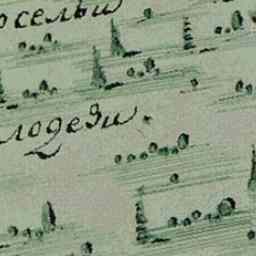 осельи
лодези